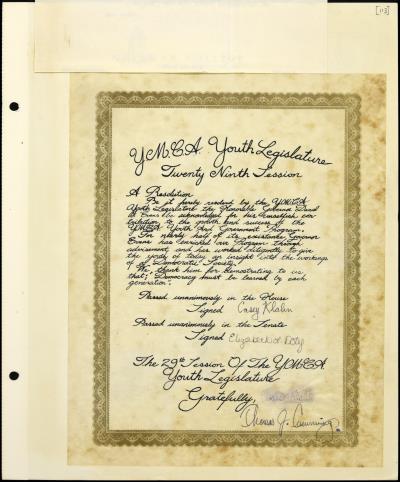 [113]
Y.M.C.A Youth Legislature
Twenty Ninth Session
A Resolution
Be it hereby resolved by the YMCA
Youth Legislature the Honorable Governor David
Evans be acknowledged for his unselfish con
tribution to the growth and success of the
Youth And Government Program.
For nearly half of its existence Governor
Evans has enriched our Program through
advisement and has worked diligently to give
the youth of today an insight into the workings
of a Democratic Society.
We, thank him for demonstrating to us
that; "Democracy must be learned by each
generation".
Passed unanimously in the House
Signed Casey Klahn
Passed unanimously in the Senate
Signed Elizabeth Doty
The 29th Session Of The YMCA
Youth Legislature
Gratefully,
Thomas J. Cummings